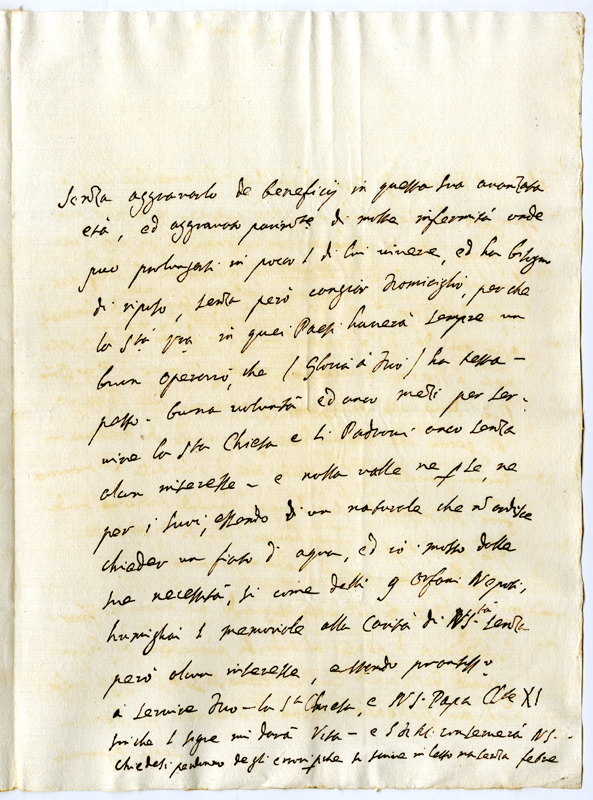 Senza aggravarlo de beneficij in questa sua avanzata
età, ed aggravato parimte di molte infermità onde
puo prolungarsi in poco l di lui vivere, ed ha bisogno
di riposo, senza però cangiar Domicilio, perche
la Stà Vra in quei Paesi haverà sempre un
buon operario, che (Gloria à Dio) ha
buona volontà ed anco per ser-
vire la Sta Chiesa e Li Padroni anco senza
alcun interesse - e nulla valle ne p se, ne
per i suoi, essendo di un naturale che n ardisce
chieder un fiato di aqua, ed io mosso dalla
sua necessità, si come delli 9 orfani Nepoti,
humigliai l memoriale alla Carità di NS.tà senza
però alcun interesse, essendo prontisso
à servire Dio - la Sta Chiesa, e NS. Papa Clte XI
fin che l Sigre mi darà Vita - e S. D. M. conserverà NS.
Chiedesi perdono degli errori, che si scrive in letto ma senza febre